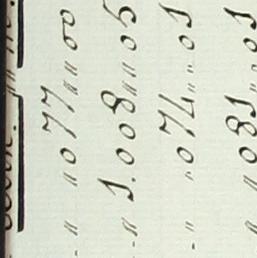 - " " 077 " " 00
- " 1.008 " " 05
- " " 074 " " 01
" " 081 " " 01